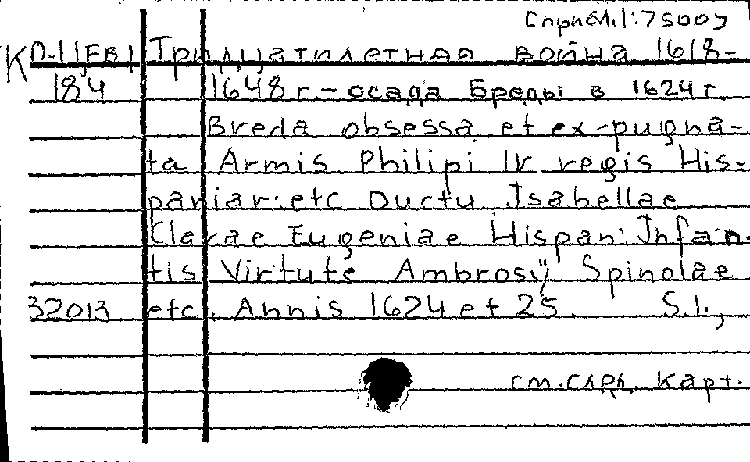 К 0-11, Ев1 Тридцатилетная война 1618-
18,4 1648 г. – осада Бреды в 1624 г.
Breda obsessa et ex-pugna-
ta Armis Philipi IV regis His-
paniar: etc Ductu Isabellae
Clarae Eugeniae Hispan: Infan-
tis Virtute Ambrosÿ Spinolae
32013 etc. Annis 1624 et 25. S.l.,
см. след. карт.